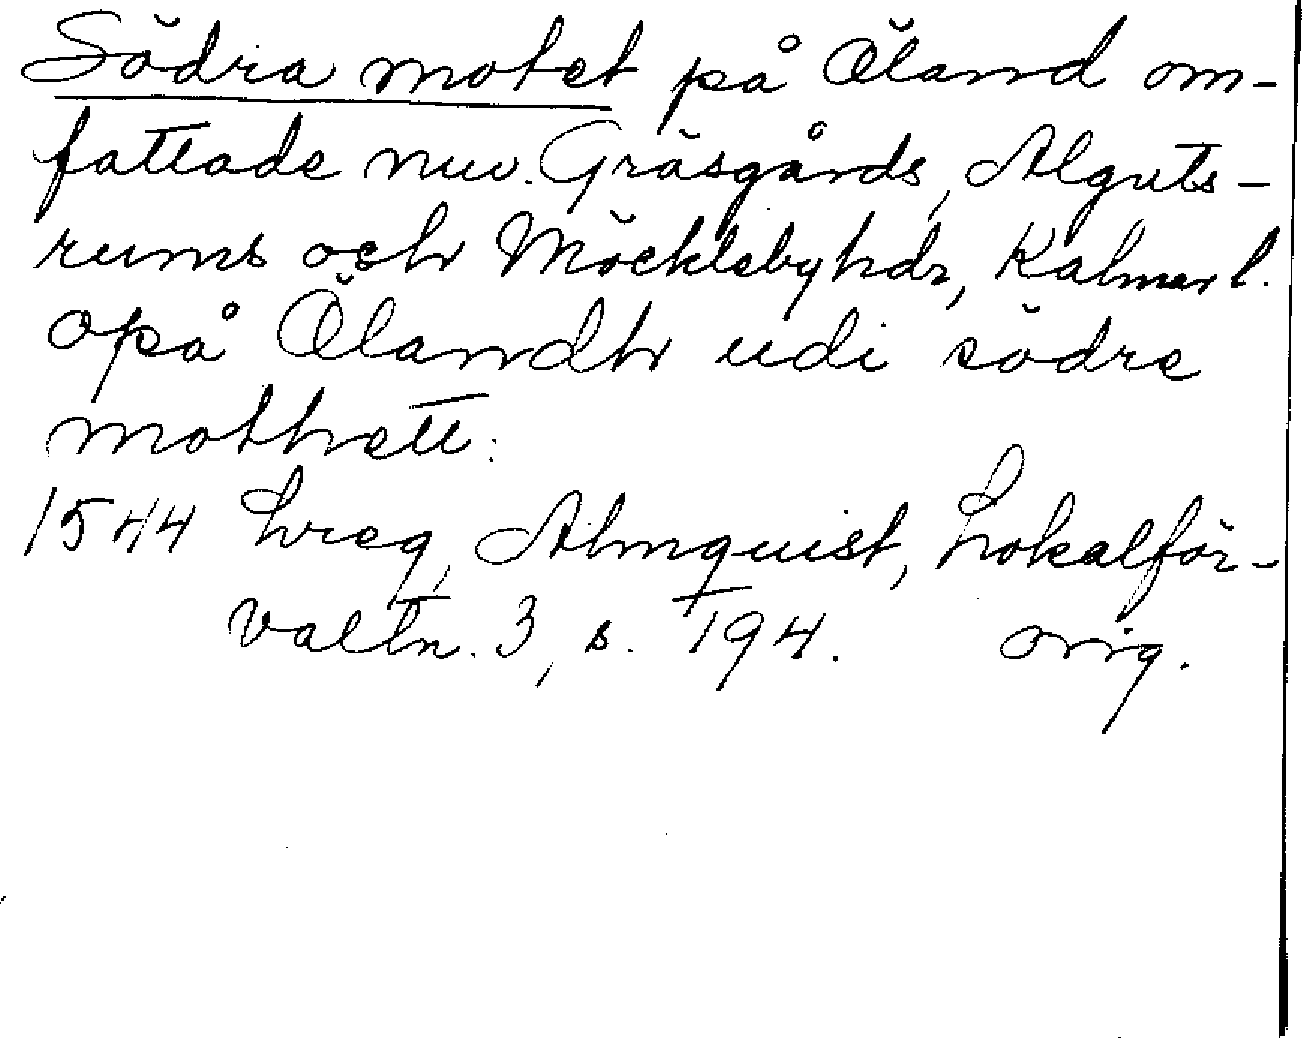 Södra motet på Öland om-
fattade nuv. Gräsgårds, Alguts-
rums och Möckleby hdr, Kalmar l.
opå Ölandh udi södre
mothett:
1544 Lreg, Almquist, Lokalför-
valtn. 3, s. 194. orig.